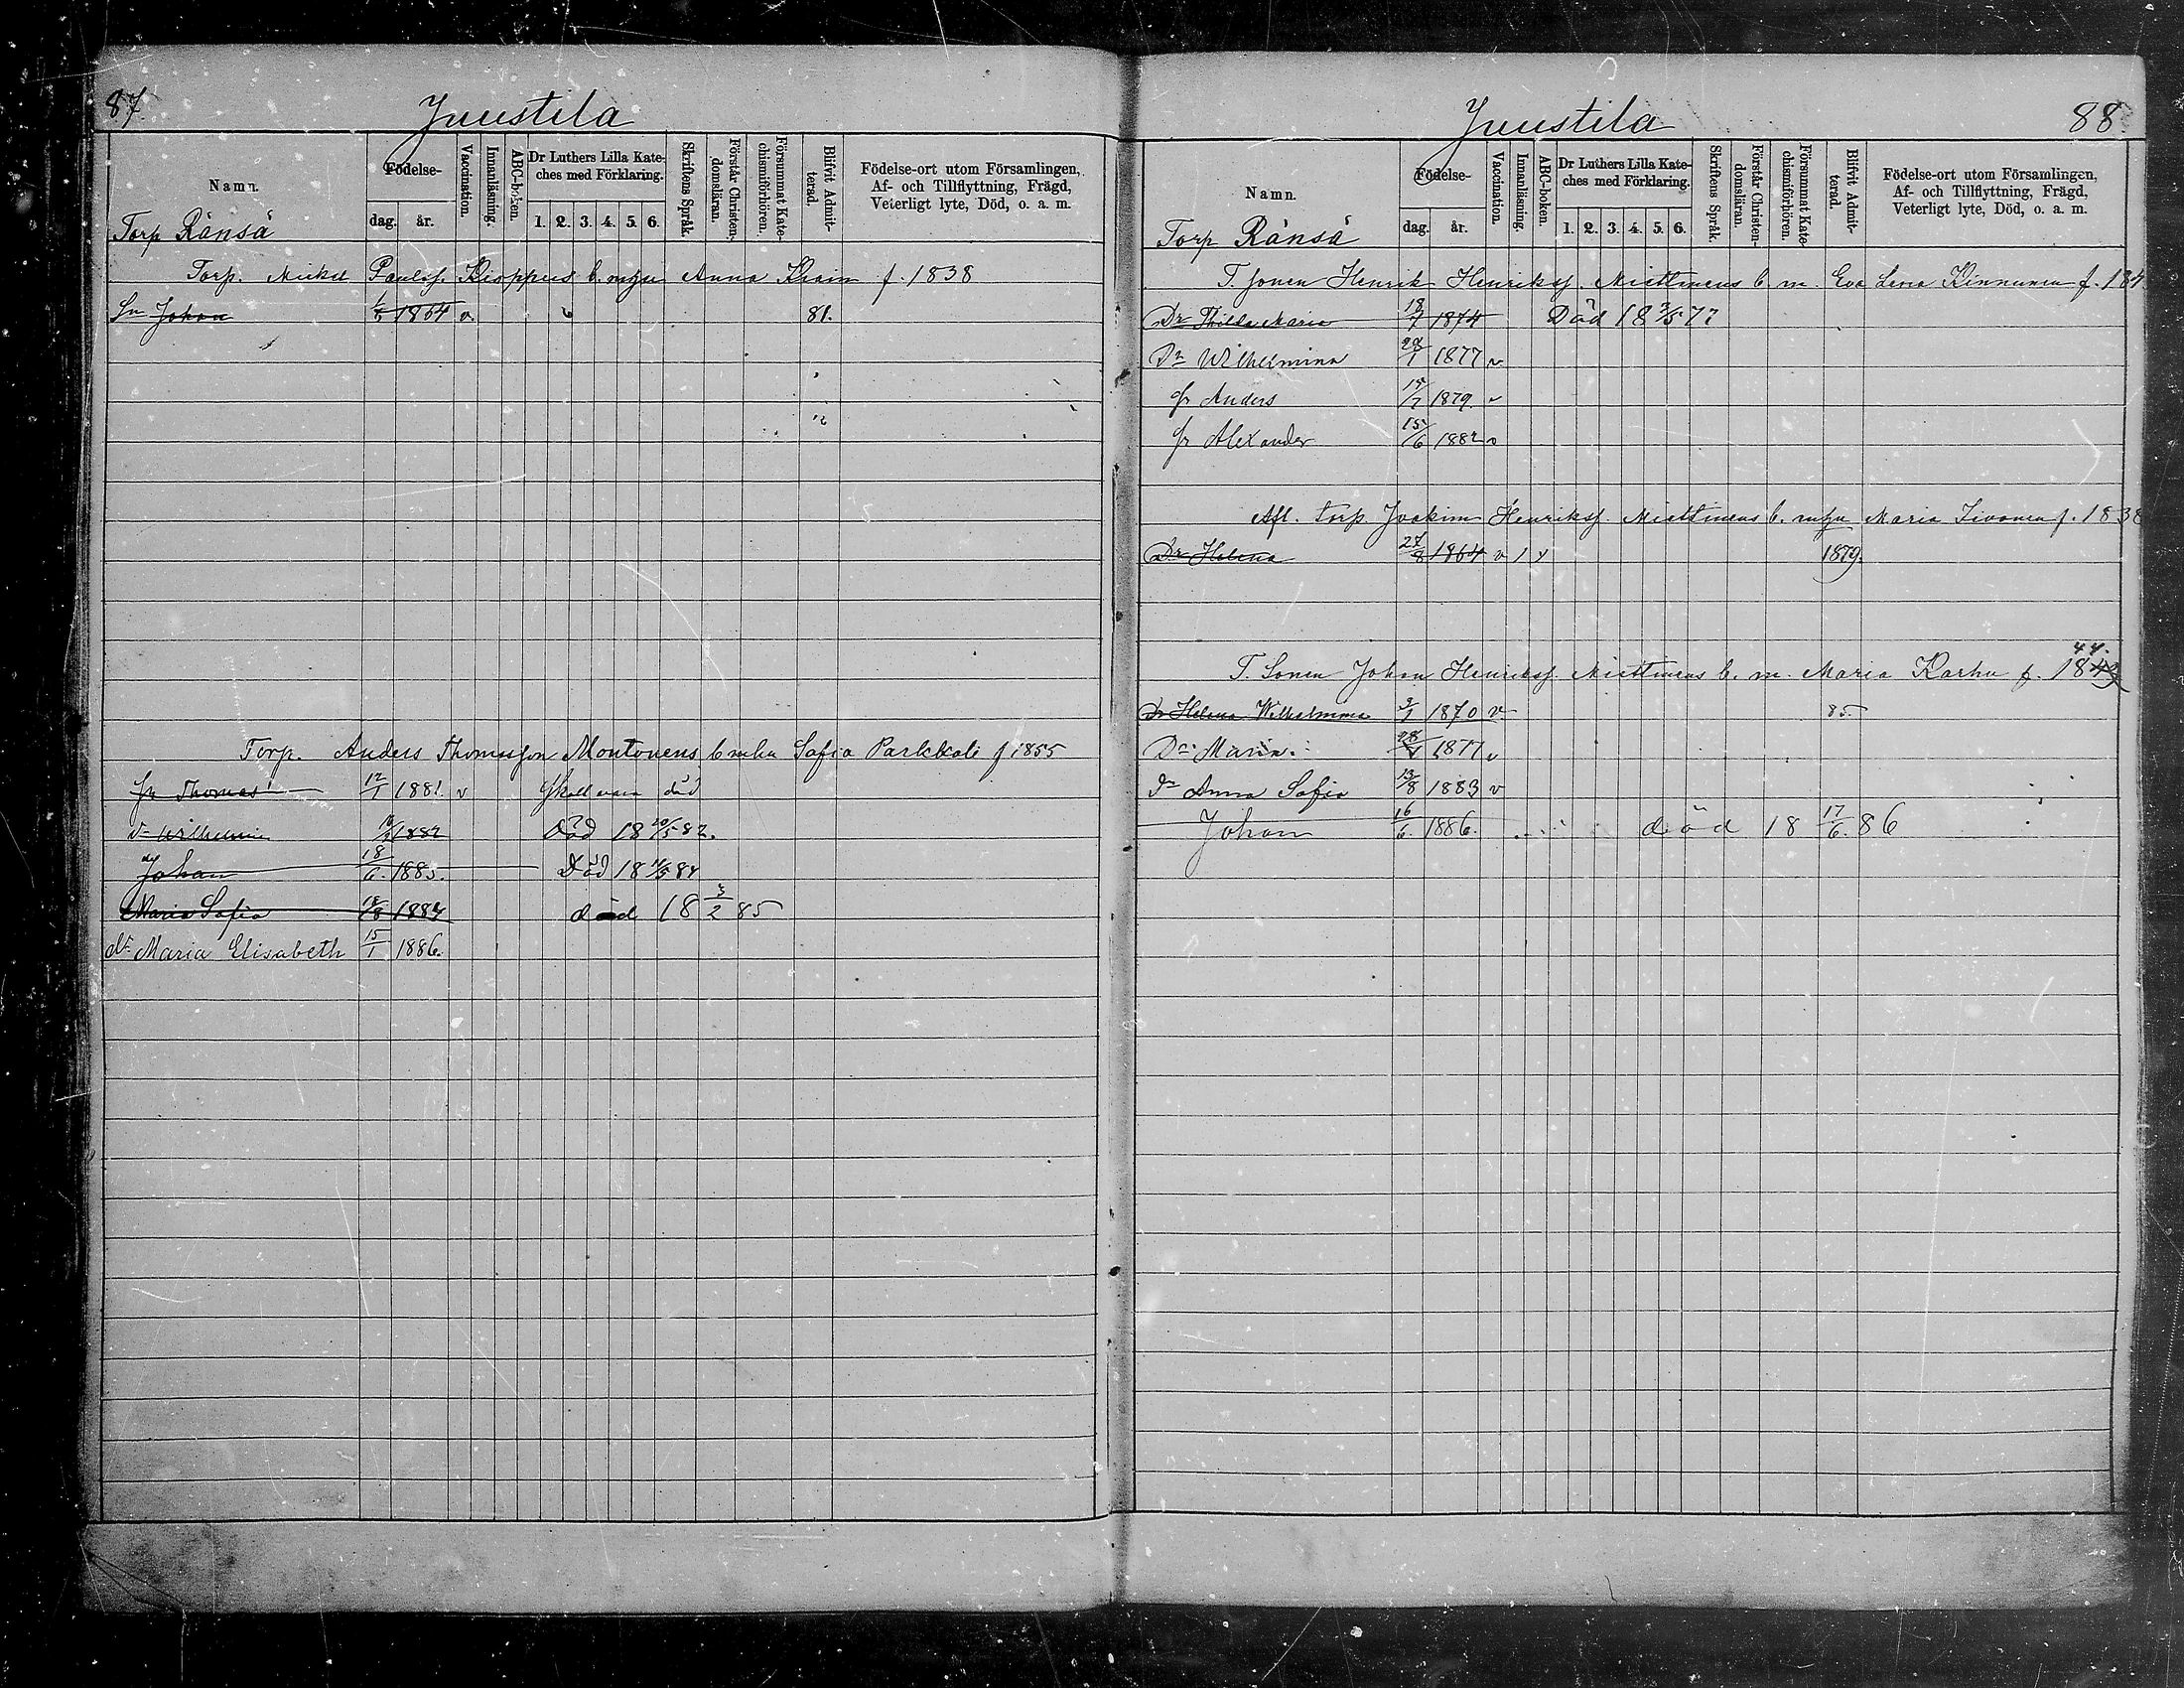 87
Juustila
Namn.
Födelse-
dag. år.
Vaccination.
Innanläsning.
ABC-boken.
Dr Luthers Lilla Kate-
ches med Förklaring.
1. 2. 3. 4. 5. 6.
Skriftens Språk.
Förstår Christen-
domsläran.
Försummat Kate-
chismiförhören.
Blifvit Admit-
terad.
Födelse-ort utom Församlingen,
Af- och Tillflyttning, Frägd,
Veterligt lyte, Död, o. a. m.
Torp Ränsä
Torp. Mickel Paulsf. Anna f. 1838
Sn Johan 1864 v. 81.
Torp. Anders Thomasson Montonens Sofia Parkkali f 1855
Sn Thomas 12/1 1881. v Skall vara död
Dr Wilhelmin 1882 Död 18 20/5 82.
Johan 18/6. 1883. Död 18 84
Maria Sofia 18/8 1884 död 18 3/2 85
Dr Maria Elisabeth 15/1 1886.
Juustila
88
Namn.
Födelse-
dag. år.
Vaccination.
Innanläsning.
ABC-boken.
Dr Luthers Lilla Kate-
ches med Förklaring.
1. 2. 3. 4. 5. 6.
Skriftens Språk.
Förstår Christen-
domsläran.
Försummat Kate-
chismiförhören.
Blifvit Admit-
terad.
Födelse-ort utom Församlingen,
Af- och Tillflyttning, Frägd,
Veterligt lyte, Död, o. a. m.
Torp Ränsä
T. Sonen Henrik Henriksf. Miettinens b. m. Eva Lena Kinnunen f. 184
Dr Thilda Maria 18/7 1874 Död 18 77
Dr Wilhelmina 28/1 1877 v
Sn Anders 15/7 1879. v
Sn Alexander 15/6 1882 v
Afl. torp. Joakim Henriksf. Miettinens b. Maria Sivonen f. 1838
Dr Helena 27/8 1864 v 1 1879.
44.
T. Sonen Johan Henriksf. Miettinens b. m. Maria Karhu f. 1843
Dr Helena Wilhelmina 1870 v 85.
Dr Maria 1877 v
Dr Anna Sofia 13/8 1883 v
Johan 16/6 1886. död 18 17/6. 86